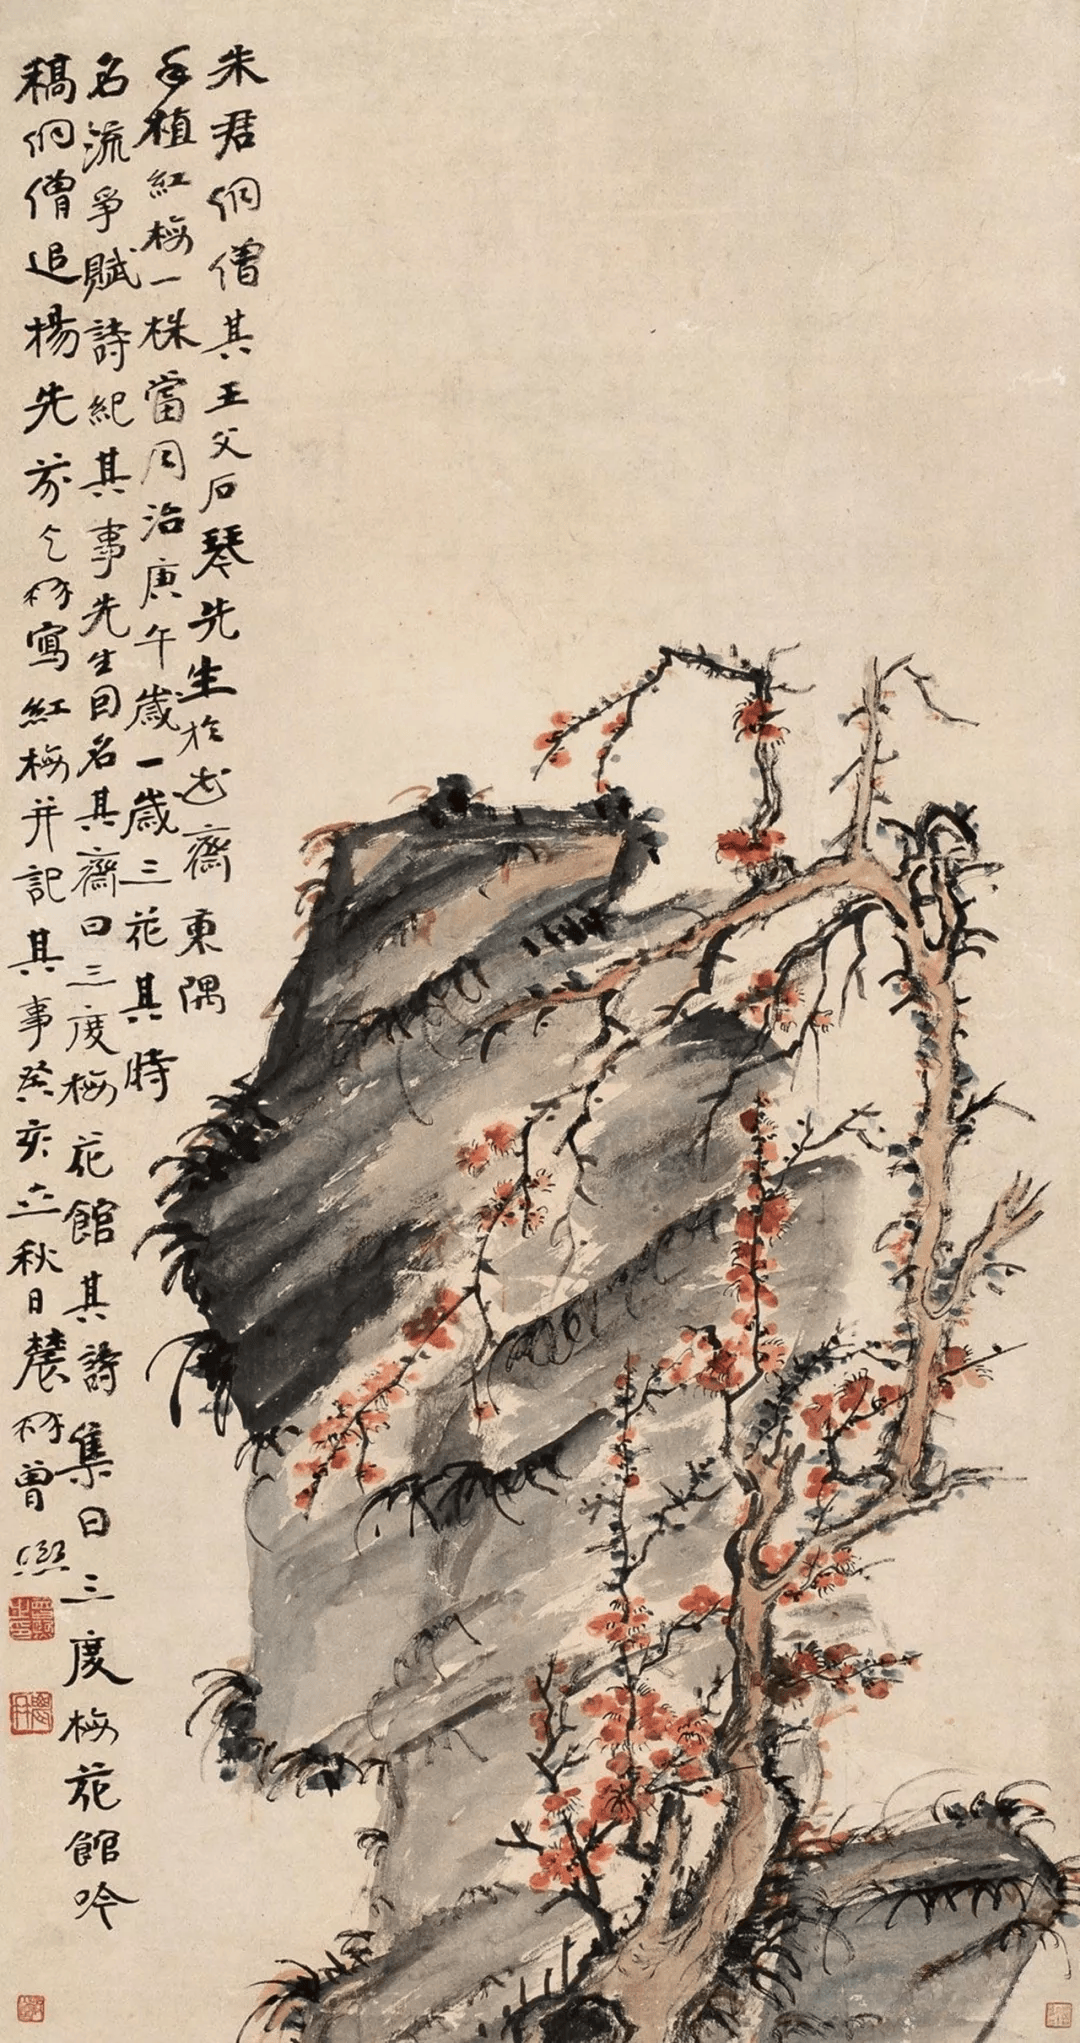 朱君侗僧其王父石琴先生於也齋東隅
手植紅梅一株當同治庚午歲一歲三花其時
名流爭賦詩紀其事先生因名其齋曰三度梅花館其詩集曰三度梅花館吟
稿侗僧追楊先芬乞髯寫紅梅并記其事癸亥立秋日農髯曾熙